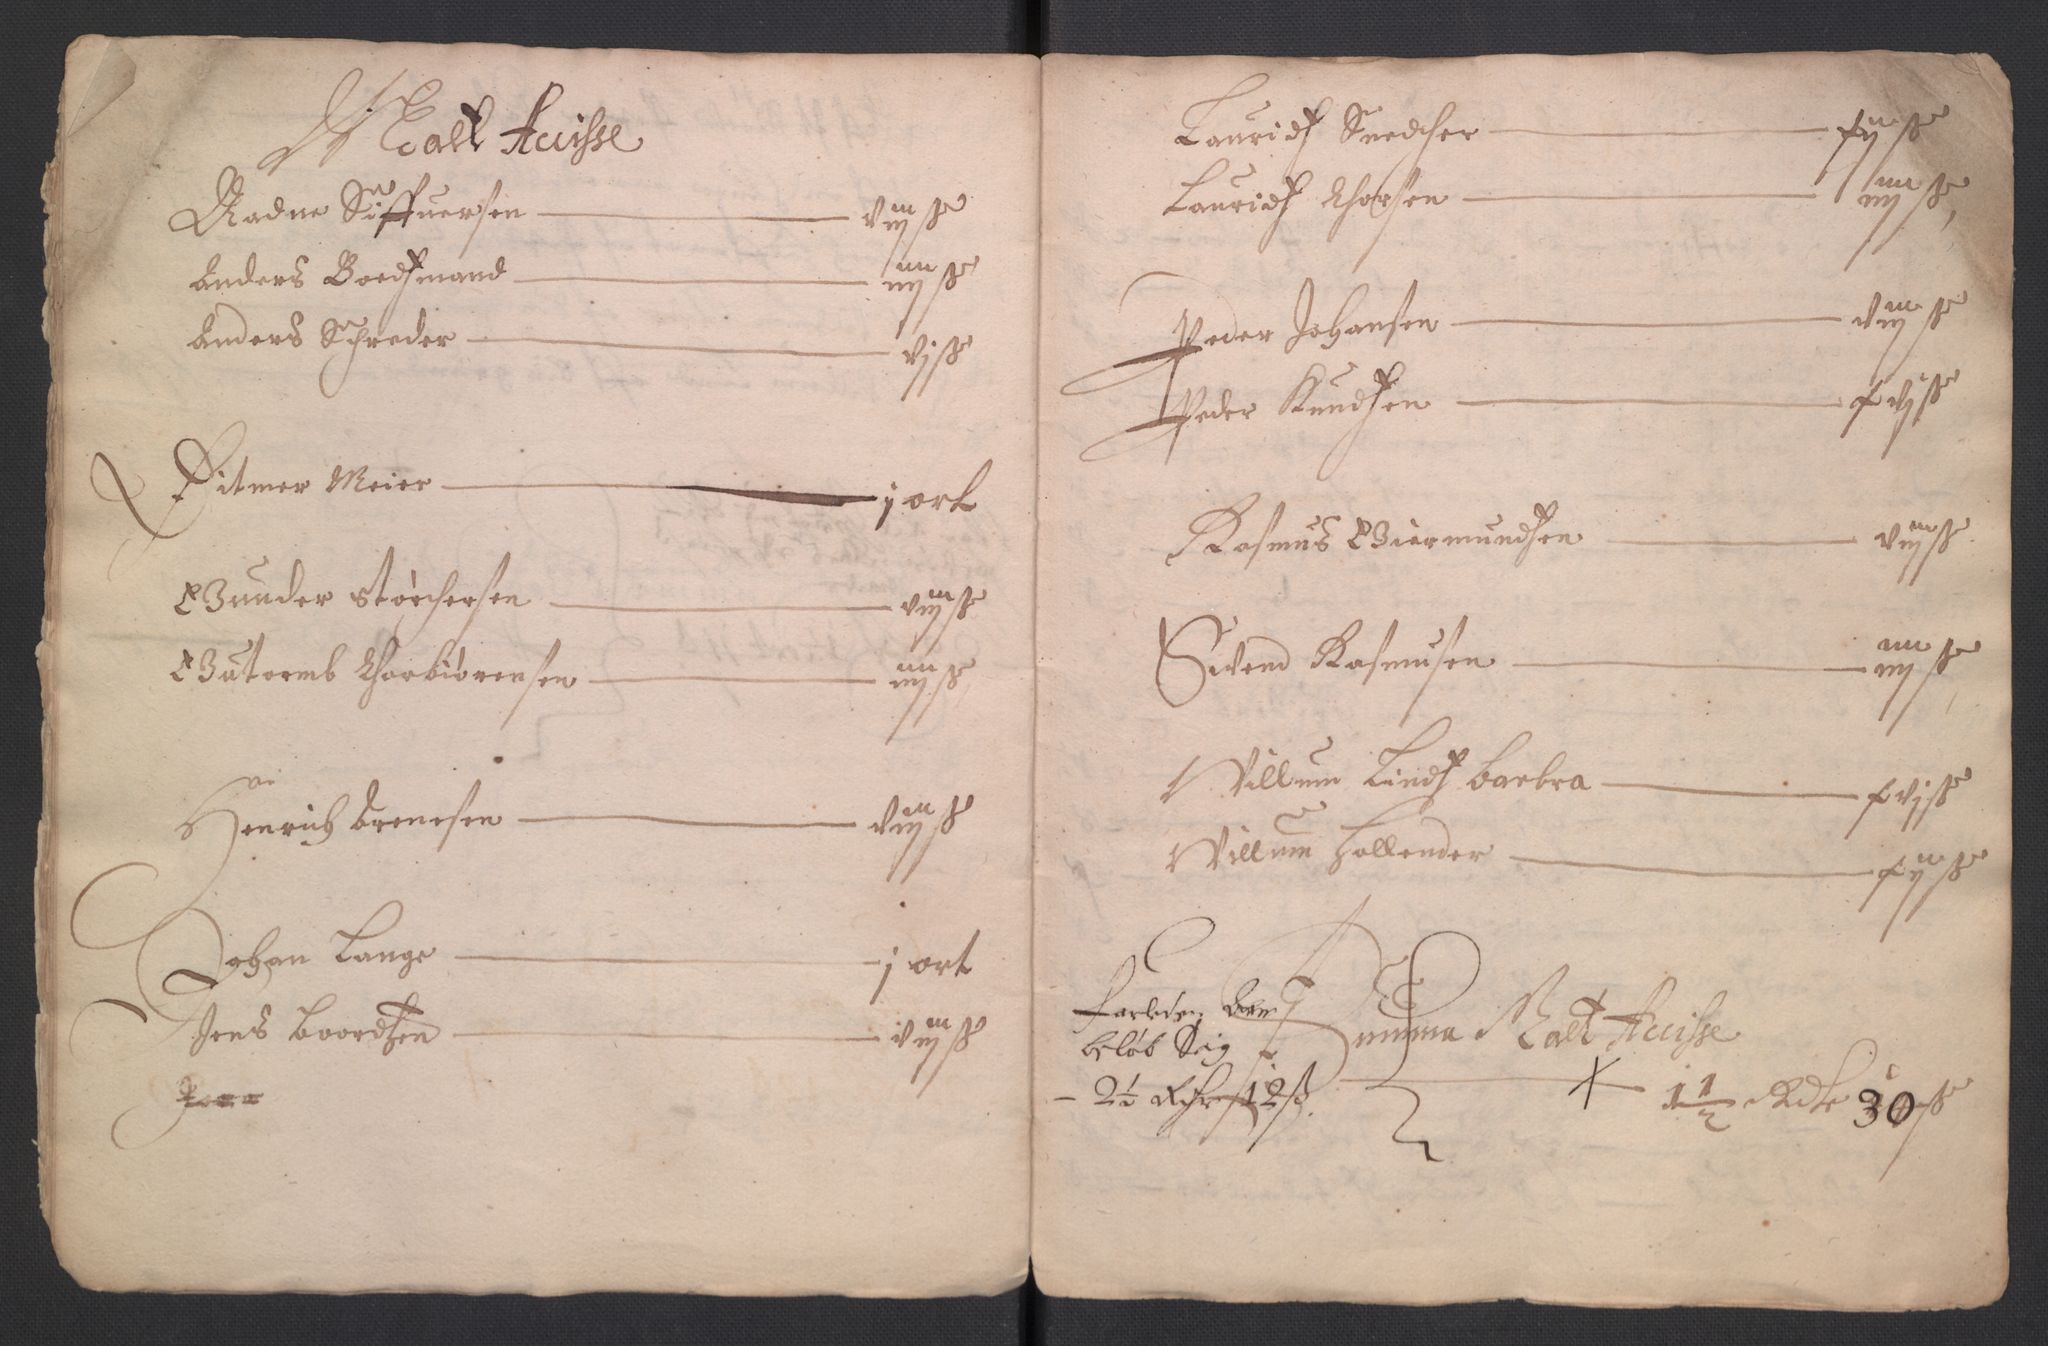 Malt Accisse
Aadne Siffuersen viij ß
Anders Boedsmand iiij ß
Anders Schreder vj ß
Ditmer Meier j ort
Gunder Størchersen viij ß
Gutormb Thorbiørensen iiij ß
Henrich Brenesen viij ß
Johan Lange j ort
Jens Boordtzen viij ß
Lauridtz Snedcher xij ß
Lauridtz Thorsen iiij ß
Peder Johansen viij ß
Peder Knudtzen xvj ß
Rasmus Giermundtzen viij ß
Svend Rasmusen iiij ß
Villum Lindtz Barbra xvj ß
Villum Hollender xij ß
Summa Malt Accisse
beløb Sig
1 1/2 Rdr 30 ß